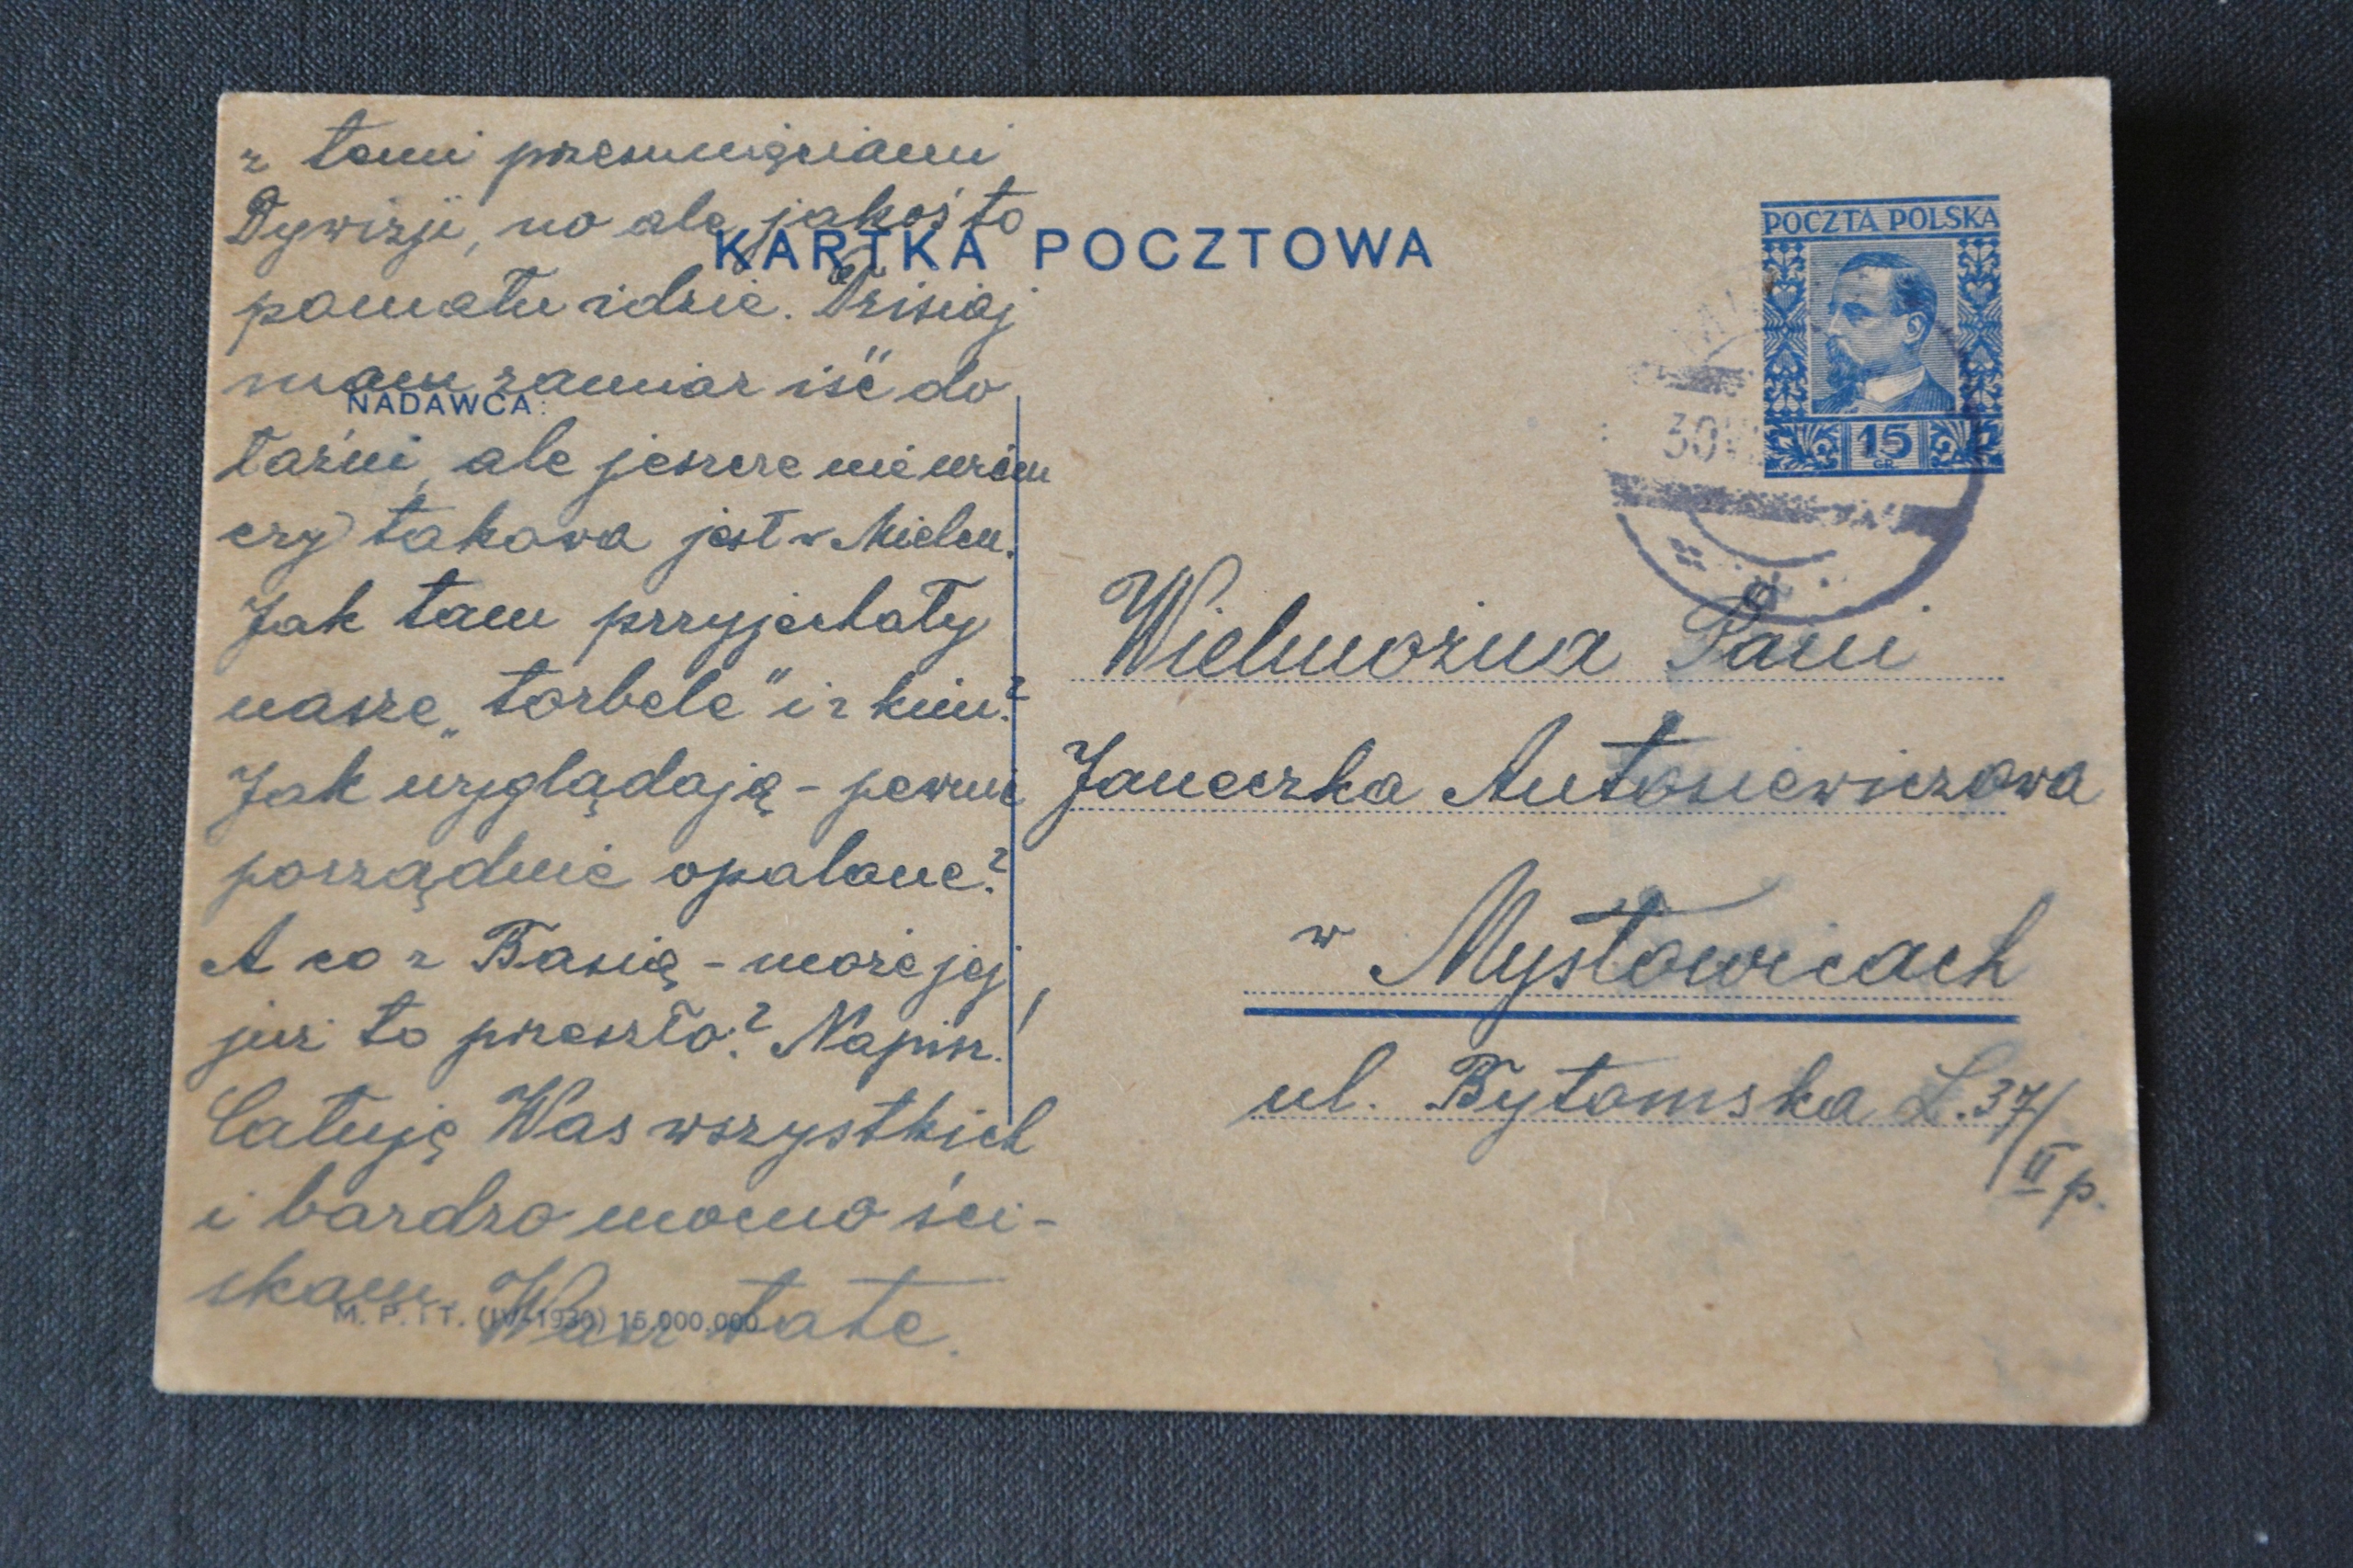 z temi przesunięciami
Dywizji, no ale jakoś to
pomału idzie. Dzisiaj
mam zamiar iść do
łaźni, ale jeszcze nie wiem
czy takowa jest w Mielcu.
Jak tam przyjechały
nasze „torbele" i z kim?
Jak wyglądają - pewnie
porządnie opalone?
A co z Basią - może jej
już to przeszło? Napisz!
Całuję Was wszystkich
i bardzo mocno ści-
skam Wasz tate.
KARTKA POCZTOWA
NADAWCA:
M. P. i T. (IV-1930) 15.000.000
POCZTA POLSKA
15
GR
30 VII
d
Wielmożna Pani
Janeczka Antosiewiczowa
w Mysłowicach
ul. Bytomska L. 37/
II p.